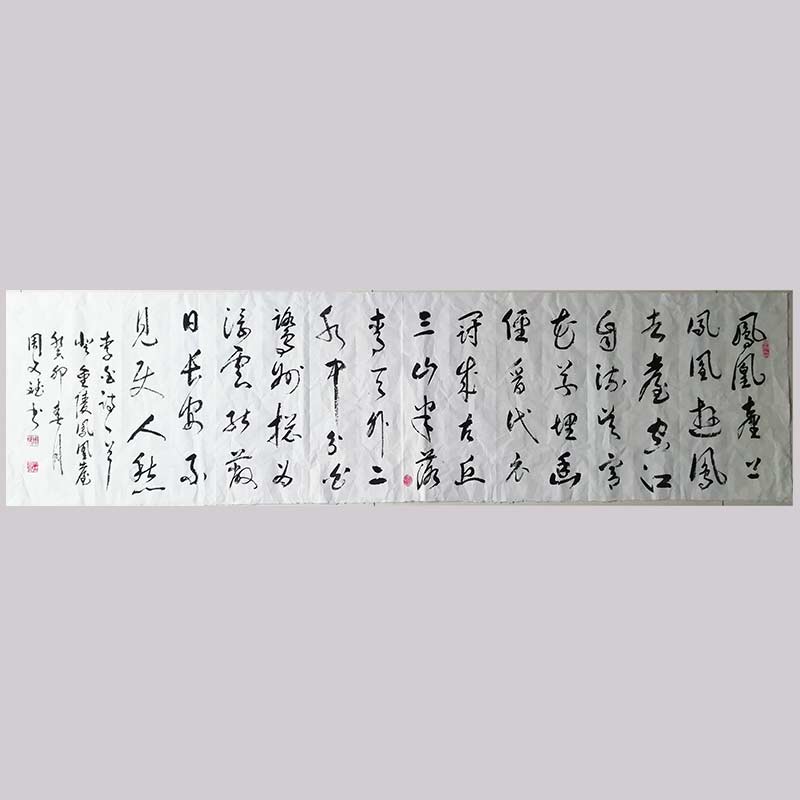 鳳凰臺上
鳳凰遊鳳
去臺空江
自流吳宮
花草埋幽
徑晉代衣
冠成古丘
三山半落
青天外二
水中分白
鷺洲總為
浮雲能蔽
日長安不
見使人愁
李白詩一首
登金陵鳳凰臺
癸卯春月
周文斌書